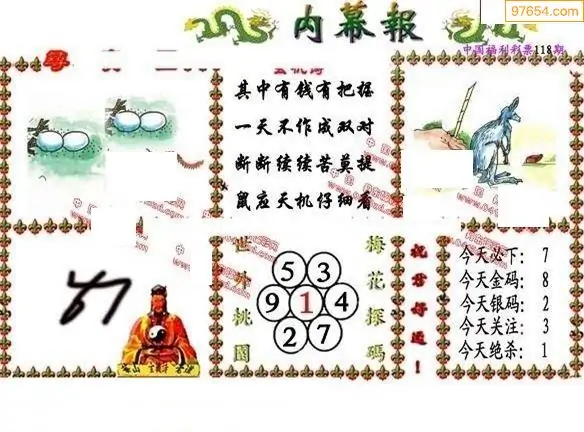 97654.com
内幕報
中国福利彩票118期
其中有钱有把握
一天不作成双对
断断续续苦莫提
鼠应天机仔细看
世外桃園
5 3
9 1 4
2 7
梅花探碼
祝君好运！
今天必下： 7
今天金码： 8
今天银码： 2
今天关注： 3
今天绝杀： 1